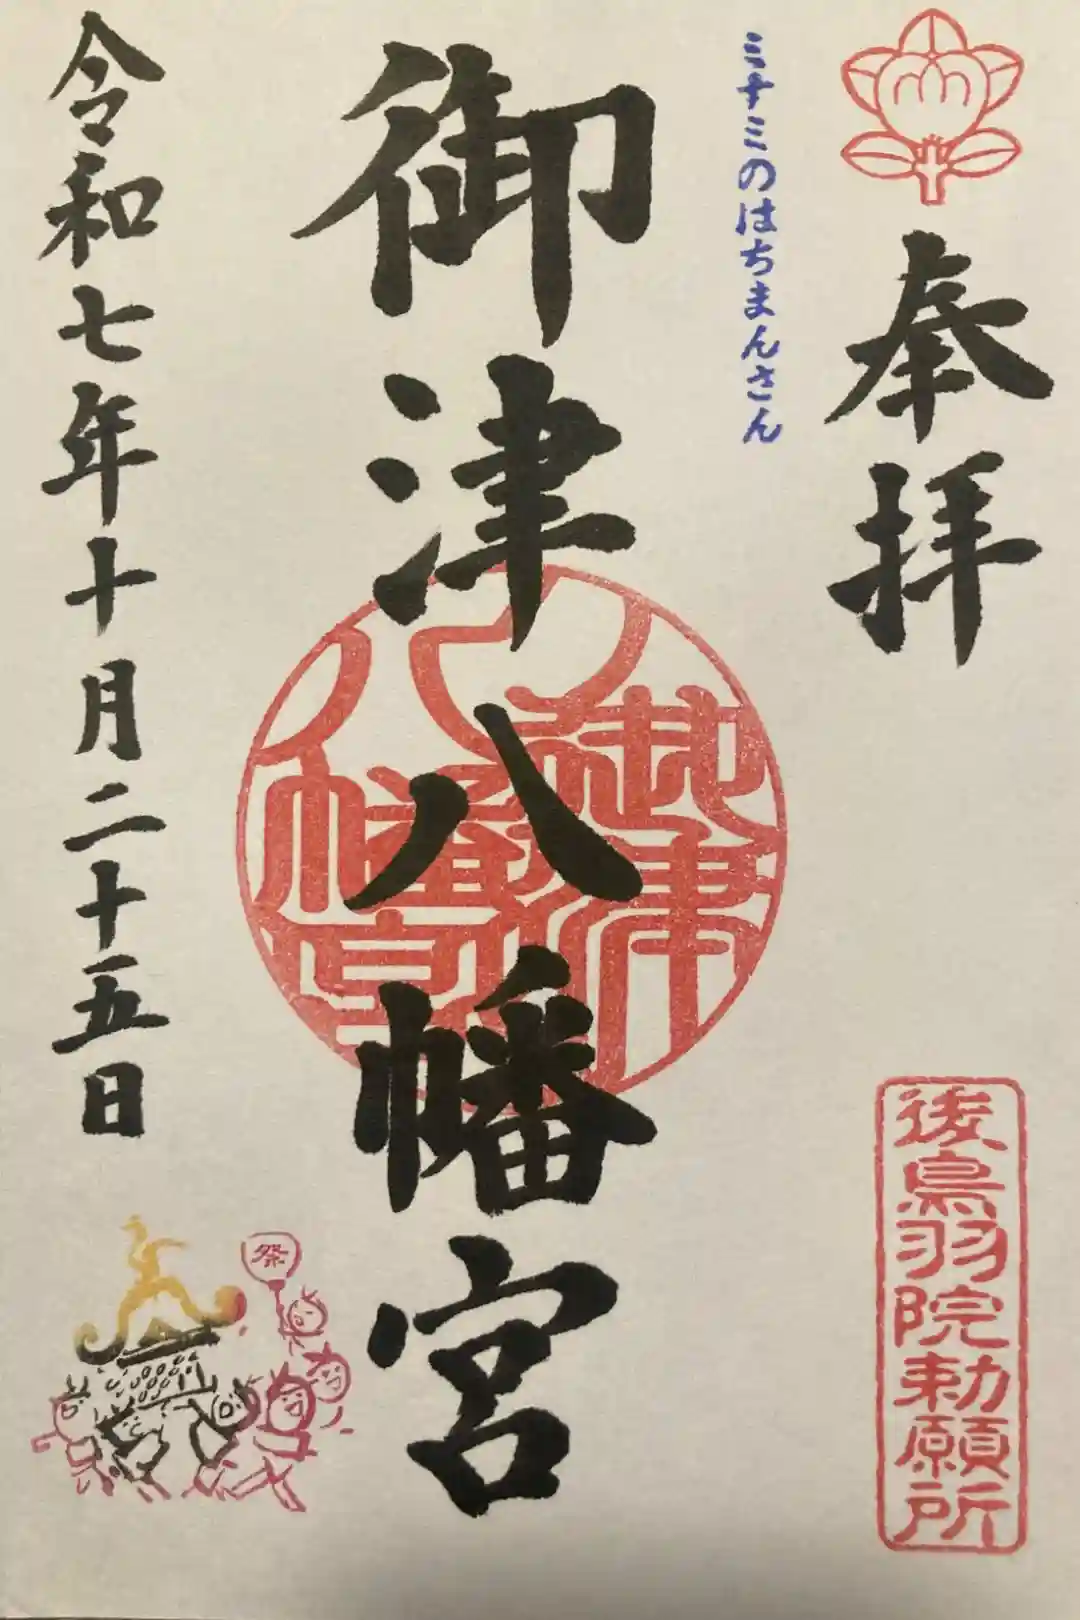 奉拝
後鳥羽院勅願所
ミナミのはちまんさん
御津八幡宮
御津
八幡宮
令和七年十月二十五日
祭